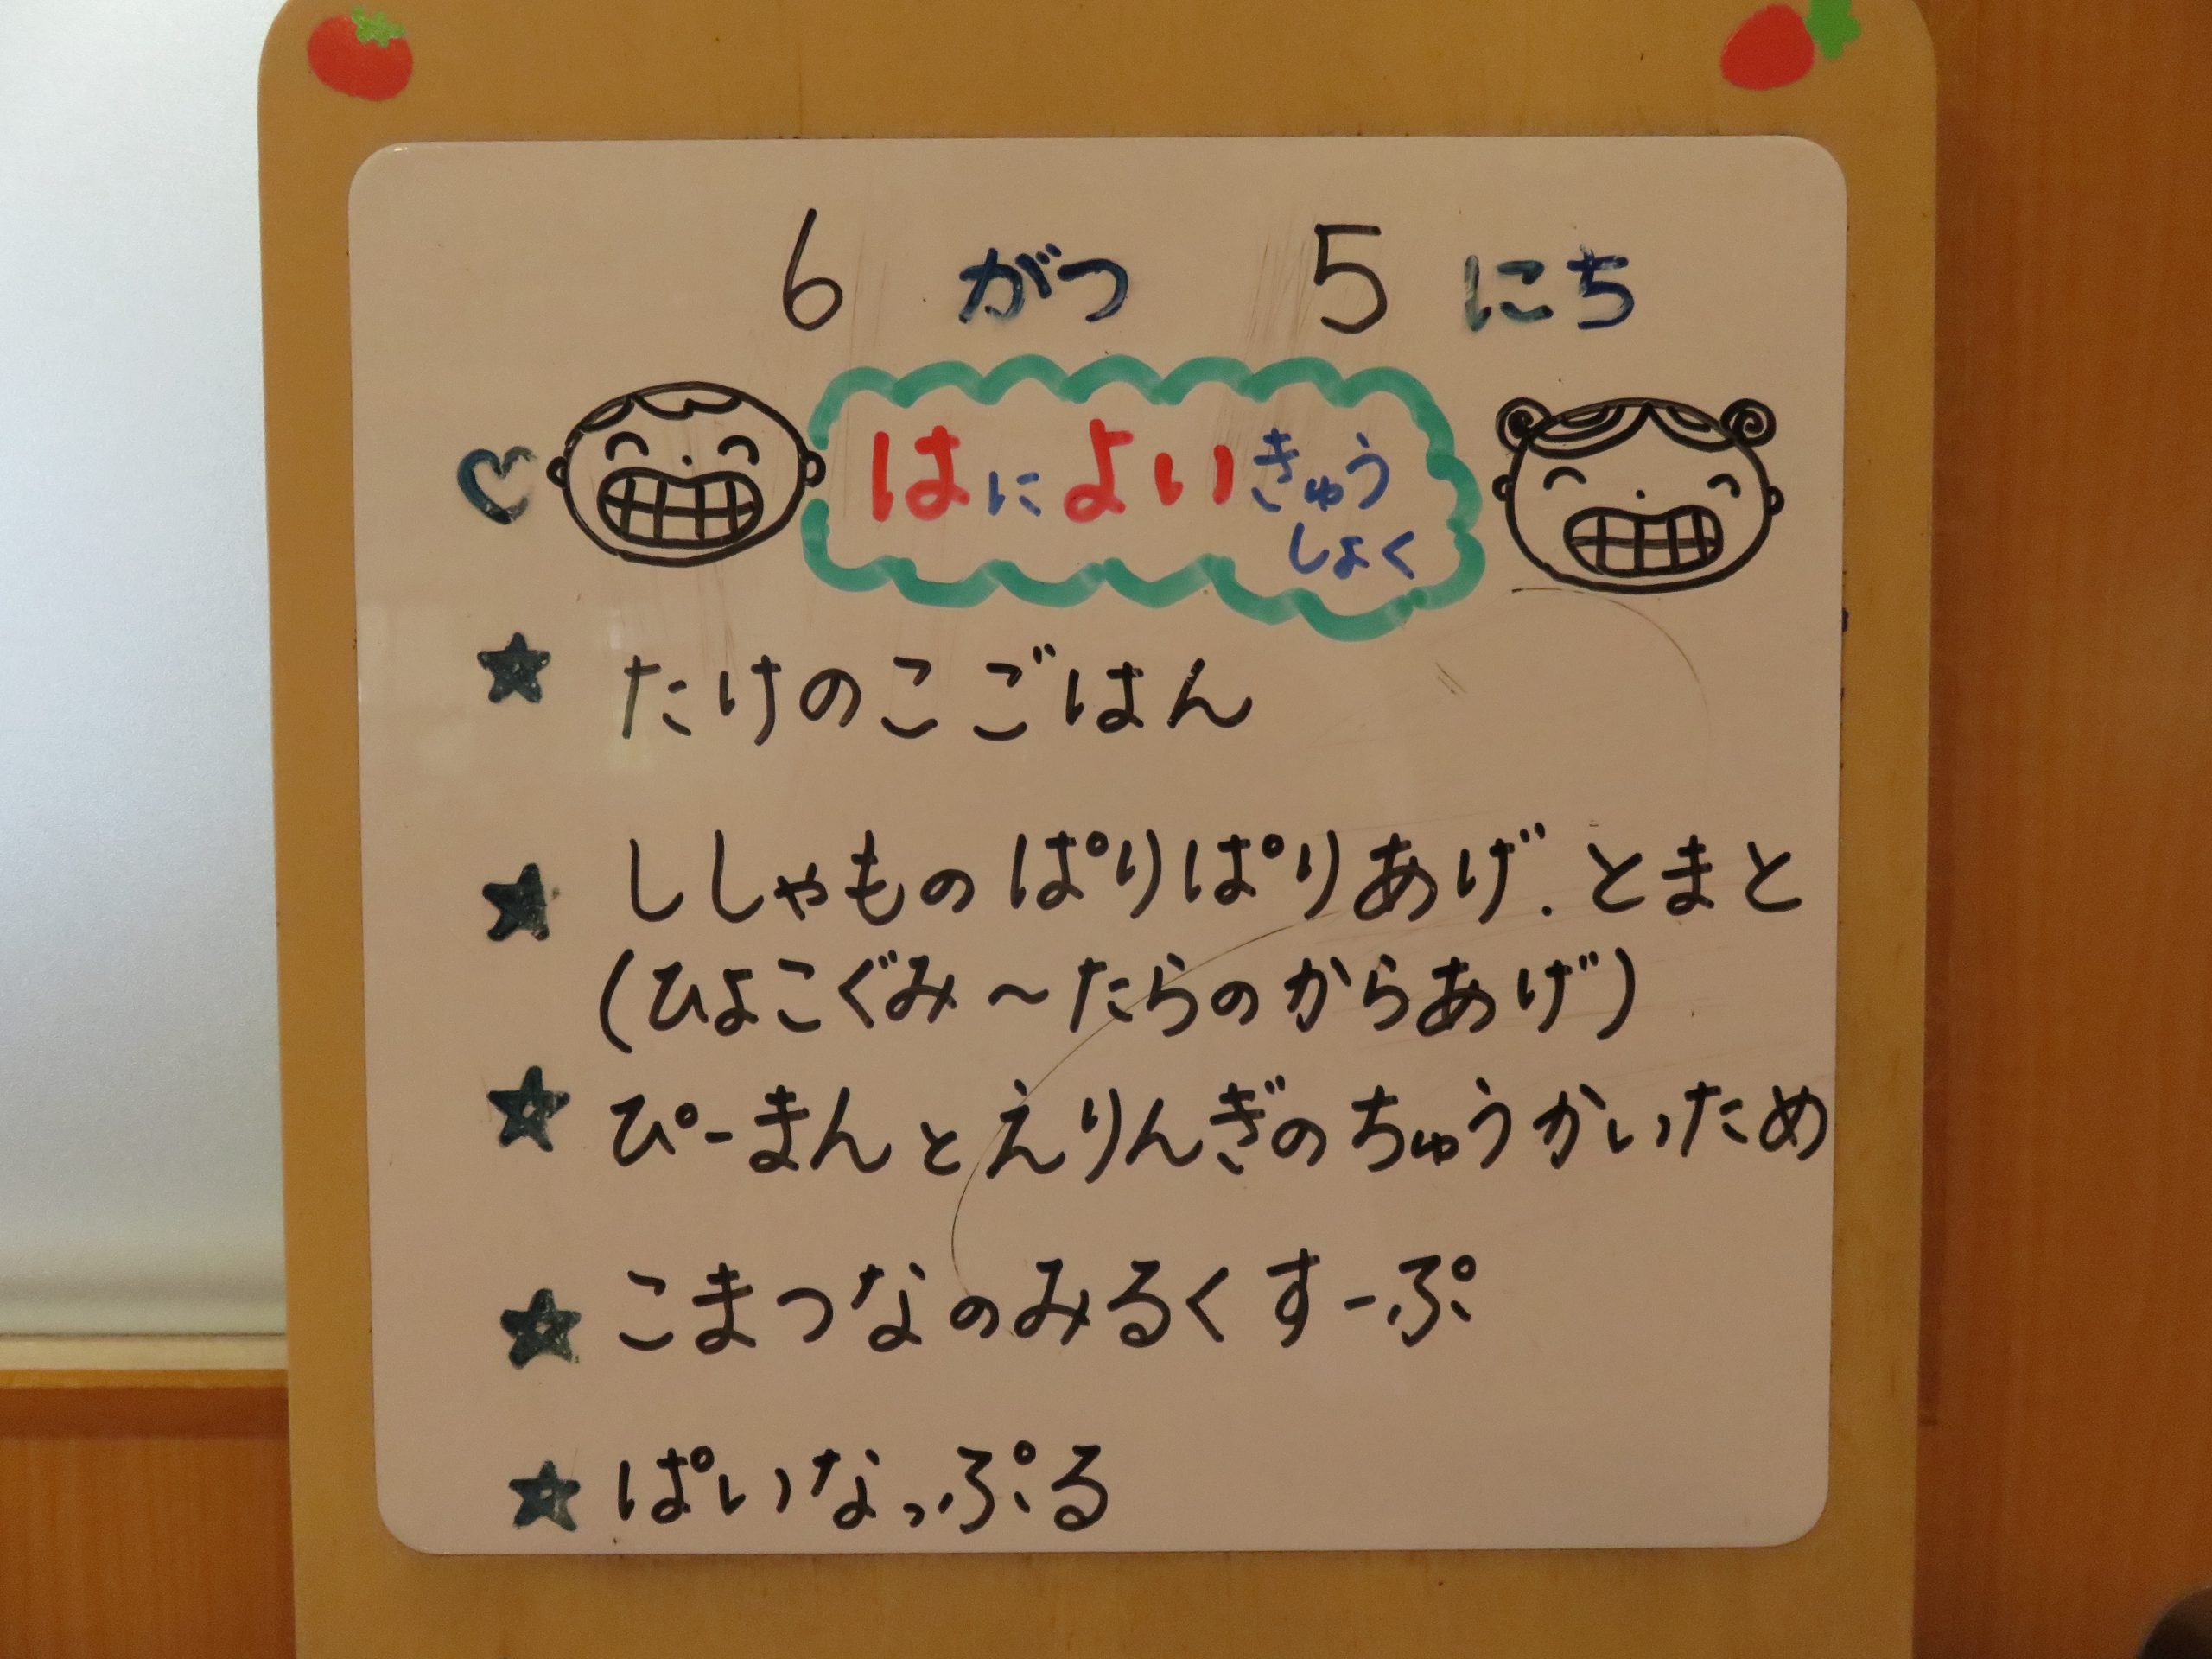 6 がつ 5 にち
はによいきゅう
しょく
たけのこごはん
ししゃものぱりぱりあげ.とまと
(ひよこぐみ〜たらのからあげ)
ぴーまんとえりんぎのちゅうかいため
こまつなのみるくすーぷ
ぱいなっぷる